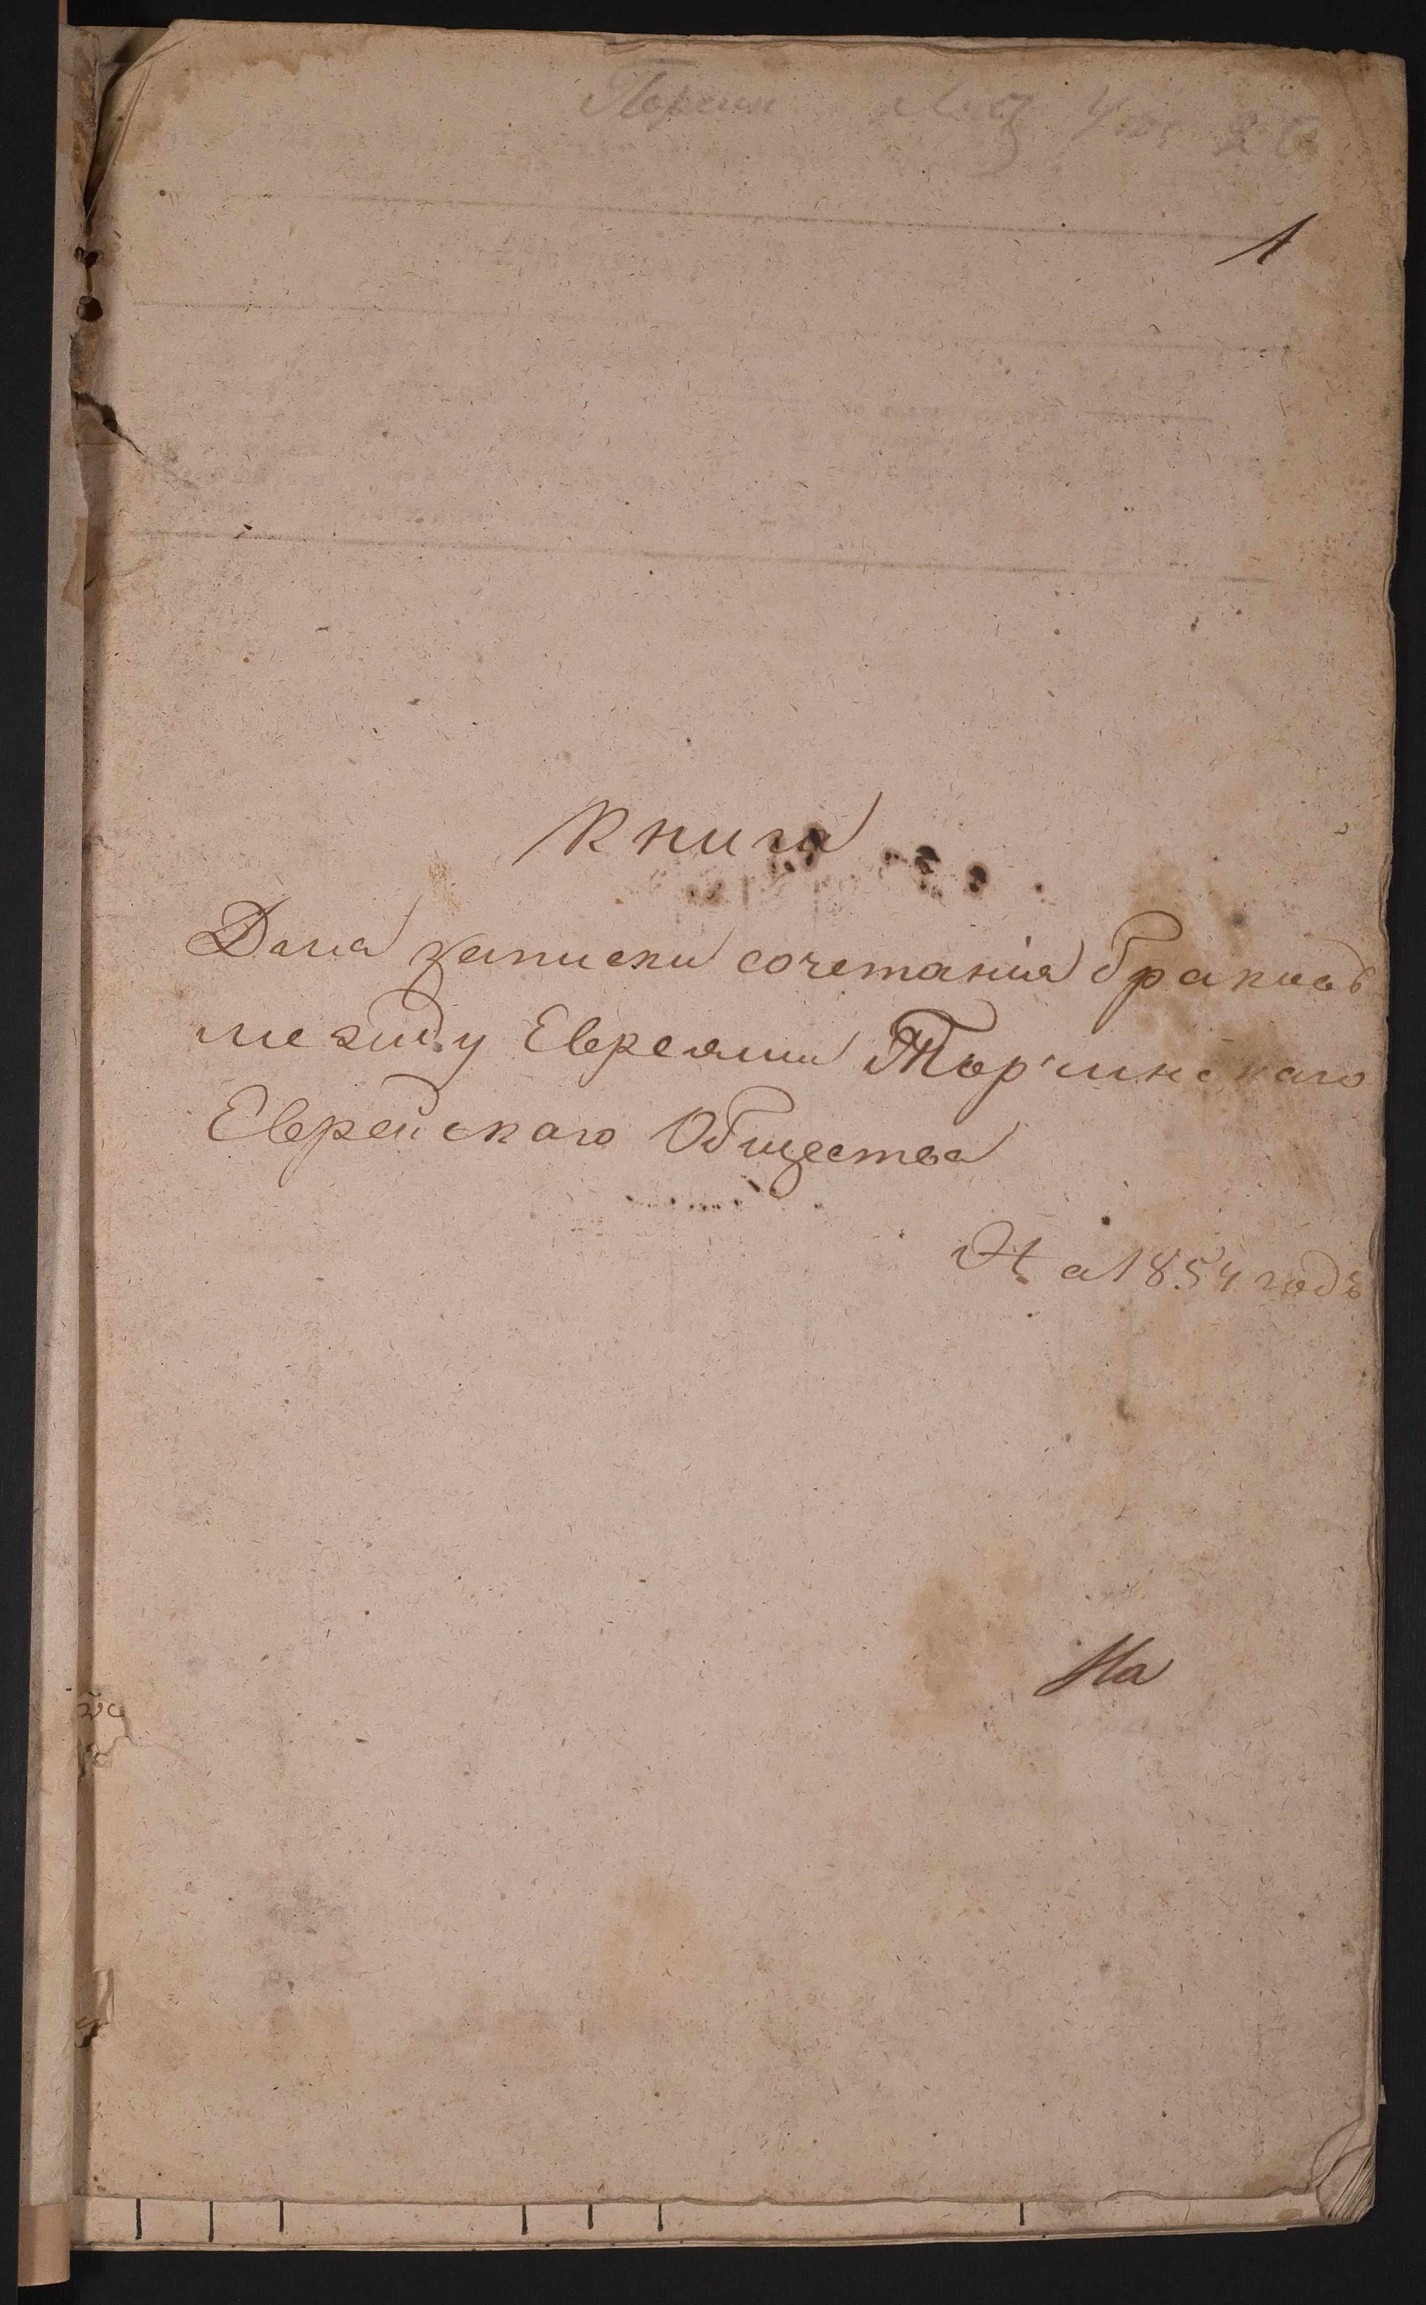 1
Книга
Для записки сочетанія браковъ
между Евреями Торчинскаго
Еврейскаго Общества
На 1854 годъ
На